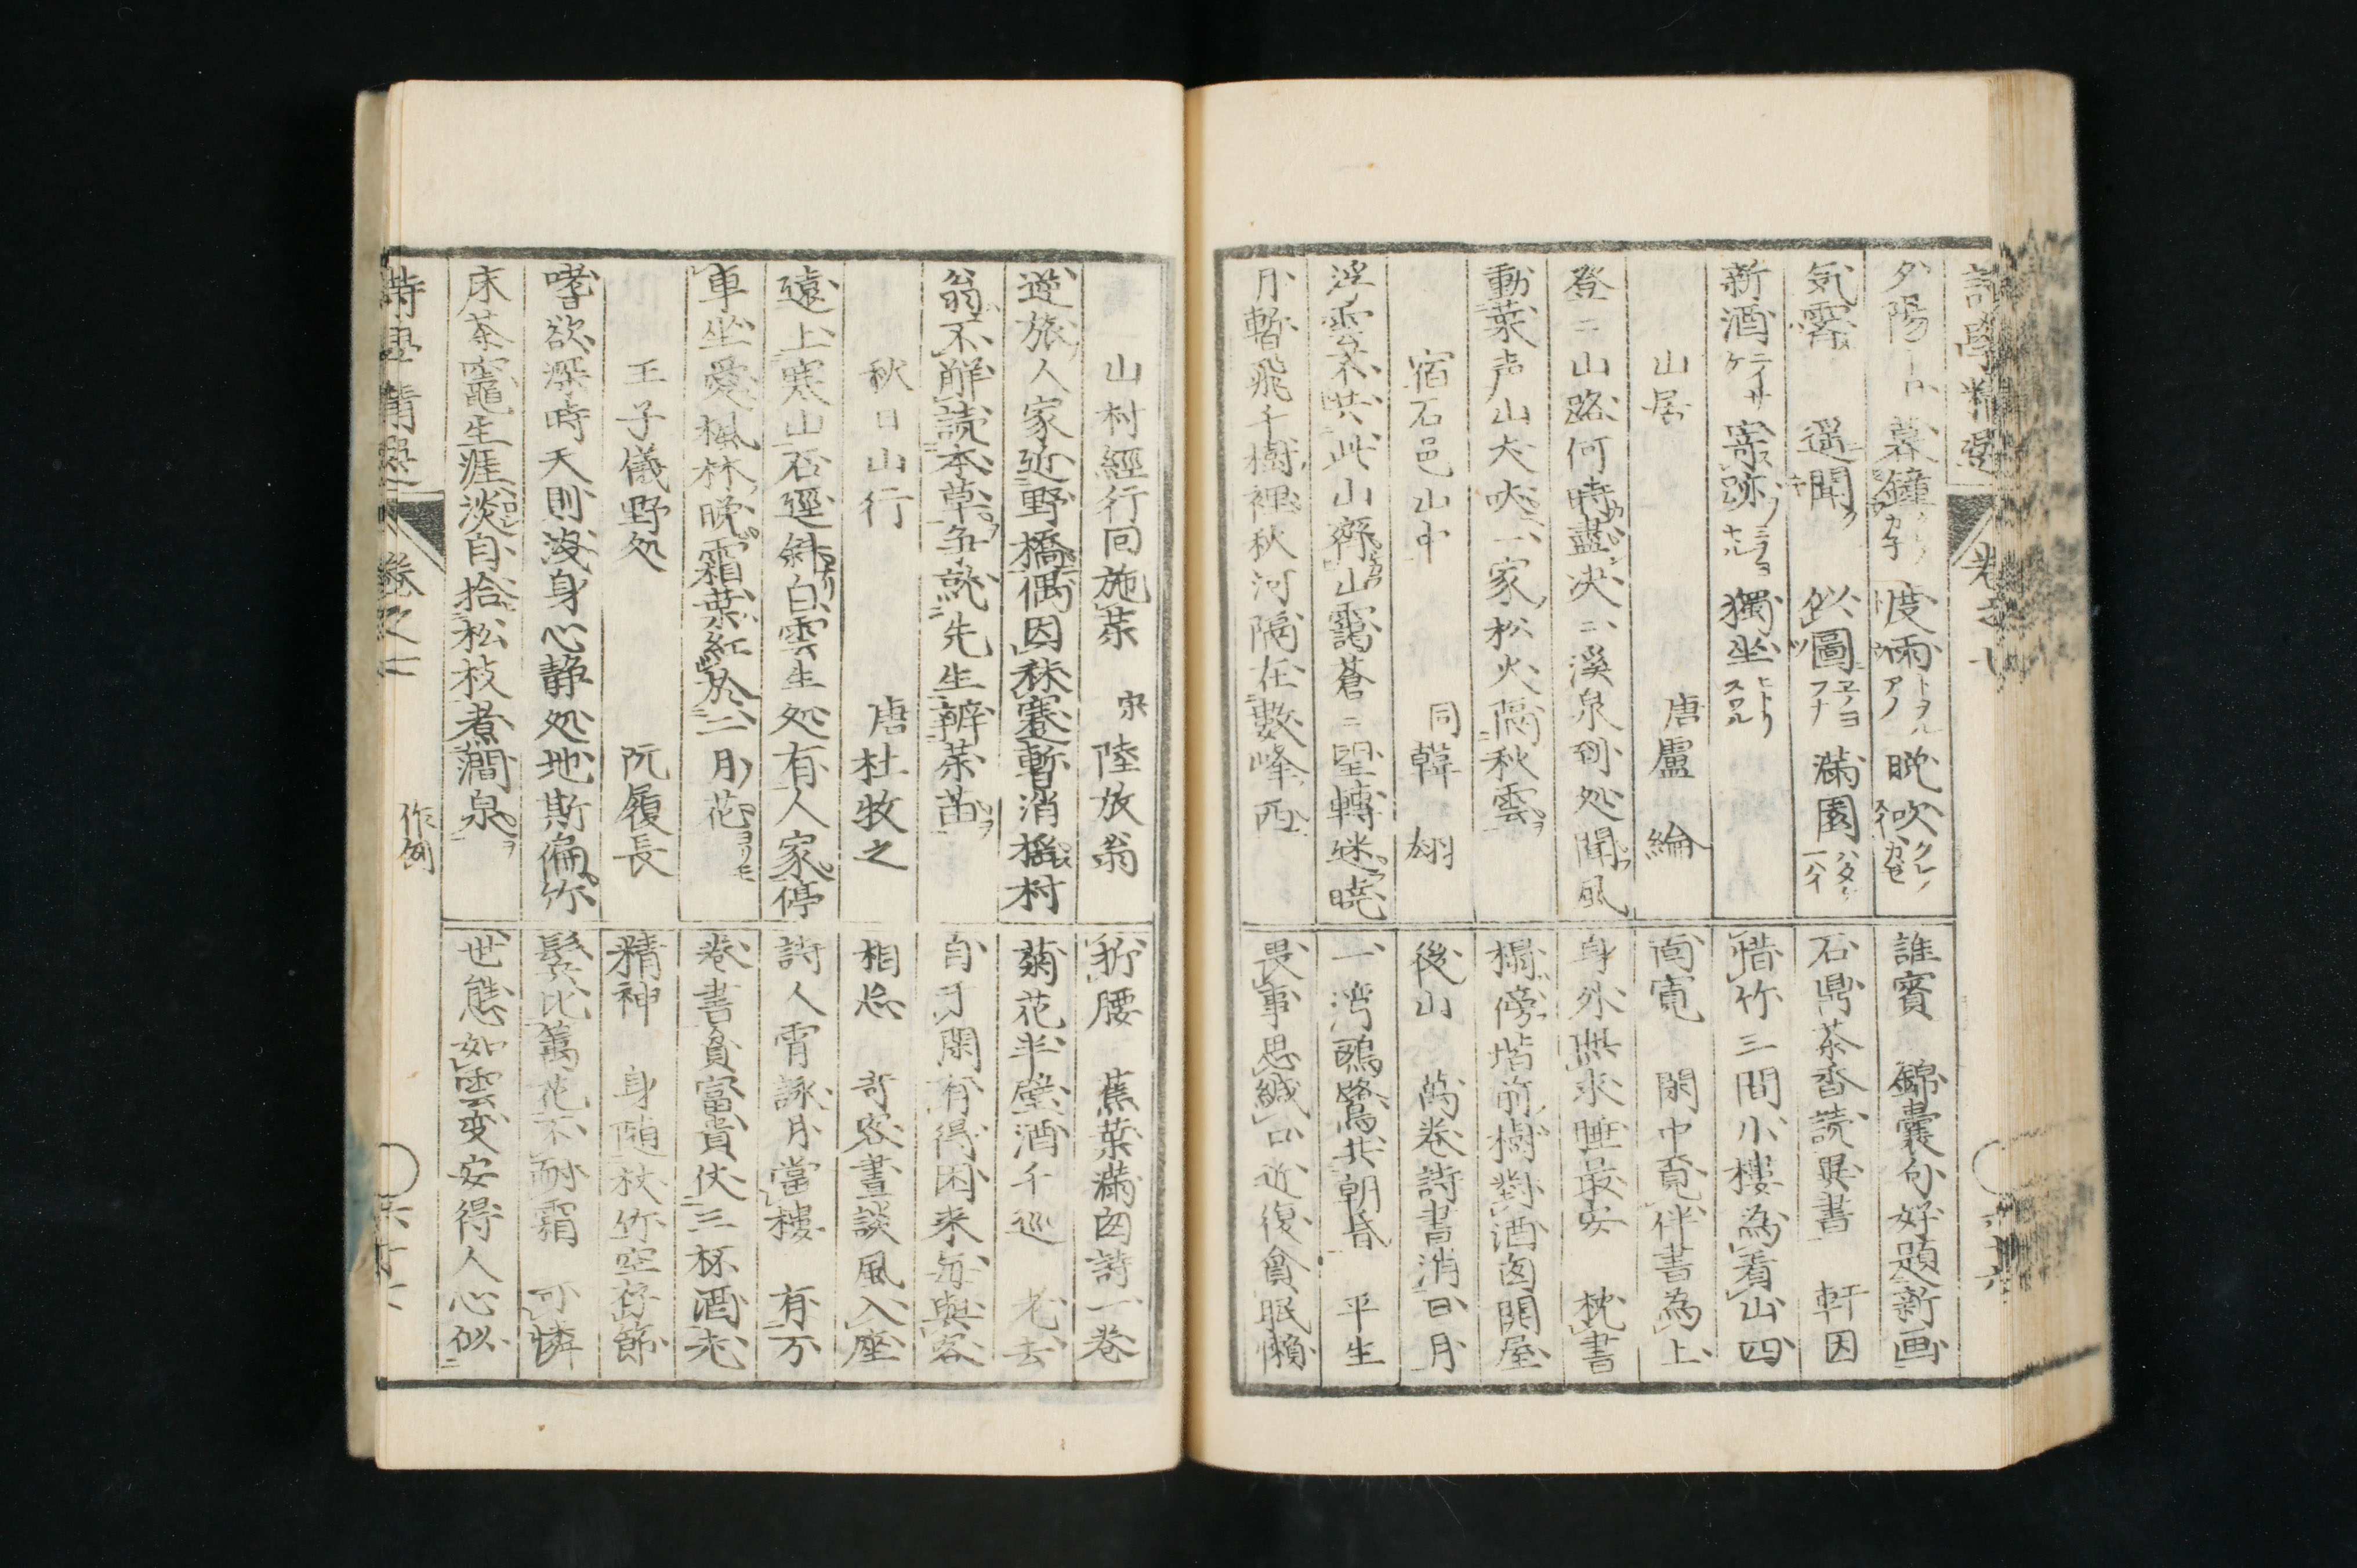 夕陽 暮鐘 度雨 晩吹
気霽 遥聞 似圖 滿園
新酒 寄跡 獨坐
山居 唐盧綸
登二山路何時盡决二溪泉到処聞風
動葉声山犬吠一家松火隔秋雲
宿石邑山中 同韓翃
浮雲不共此山齊山靄蒼二望轉迷暁
月暫飛千樹裡秋河隔在數峰西
誰賓 錦嚢句好題新画
石鼎茶香読異書 軒因
惜竹三間小樓為看山四
面寛 閑中覓伴書為上
身外無求睡最安 枕書
榻傍堦前樹對酒図開屋
後山 萬巻詩書消日月
一湾鷗鷺共朝昏 平生
畏事思緘口近復貪眠懶
山村經行回施薬 宋陸放翁
逆旅人家近野橋偶因秣蹇暫消揺村
翁不解読本草争就先生辨薬苗
秋日山行 唐杜牧之
遠上寒山石逕斜白雲生処有人家停
車坐愛楓林晩霜葉紅於二月花
王子儀野処 阮履長
嗜欲深時天則淺身心静処地斯偏竹
床茶竈生涯淡自拾松枝煮澗泉
折腰 蕉葉滿図詩一巻
菊花半壁酒千巡 老去
自于閑有得困来毎與客
相忘 奇客晝談風入座
詩人宵詠月當樓 有万
巻書貧富貴仗三杯酒老
精神 身随杖竹空存節
鬂比萬花不耐霜 可憐
世態如雲変安得人心似
詩學精選 巻之二
作例
六十六